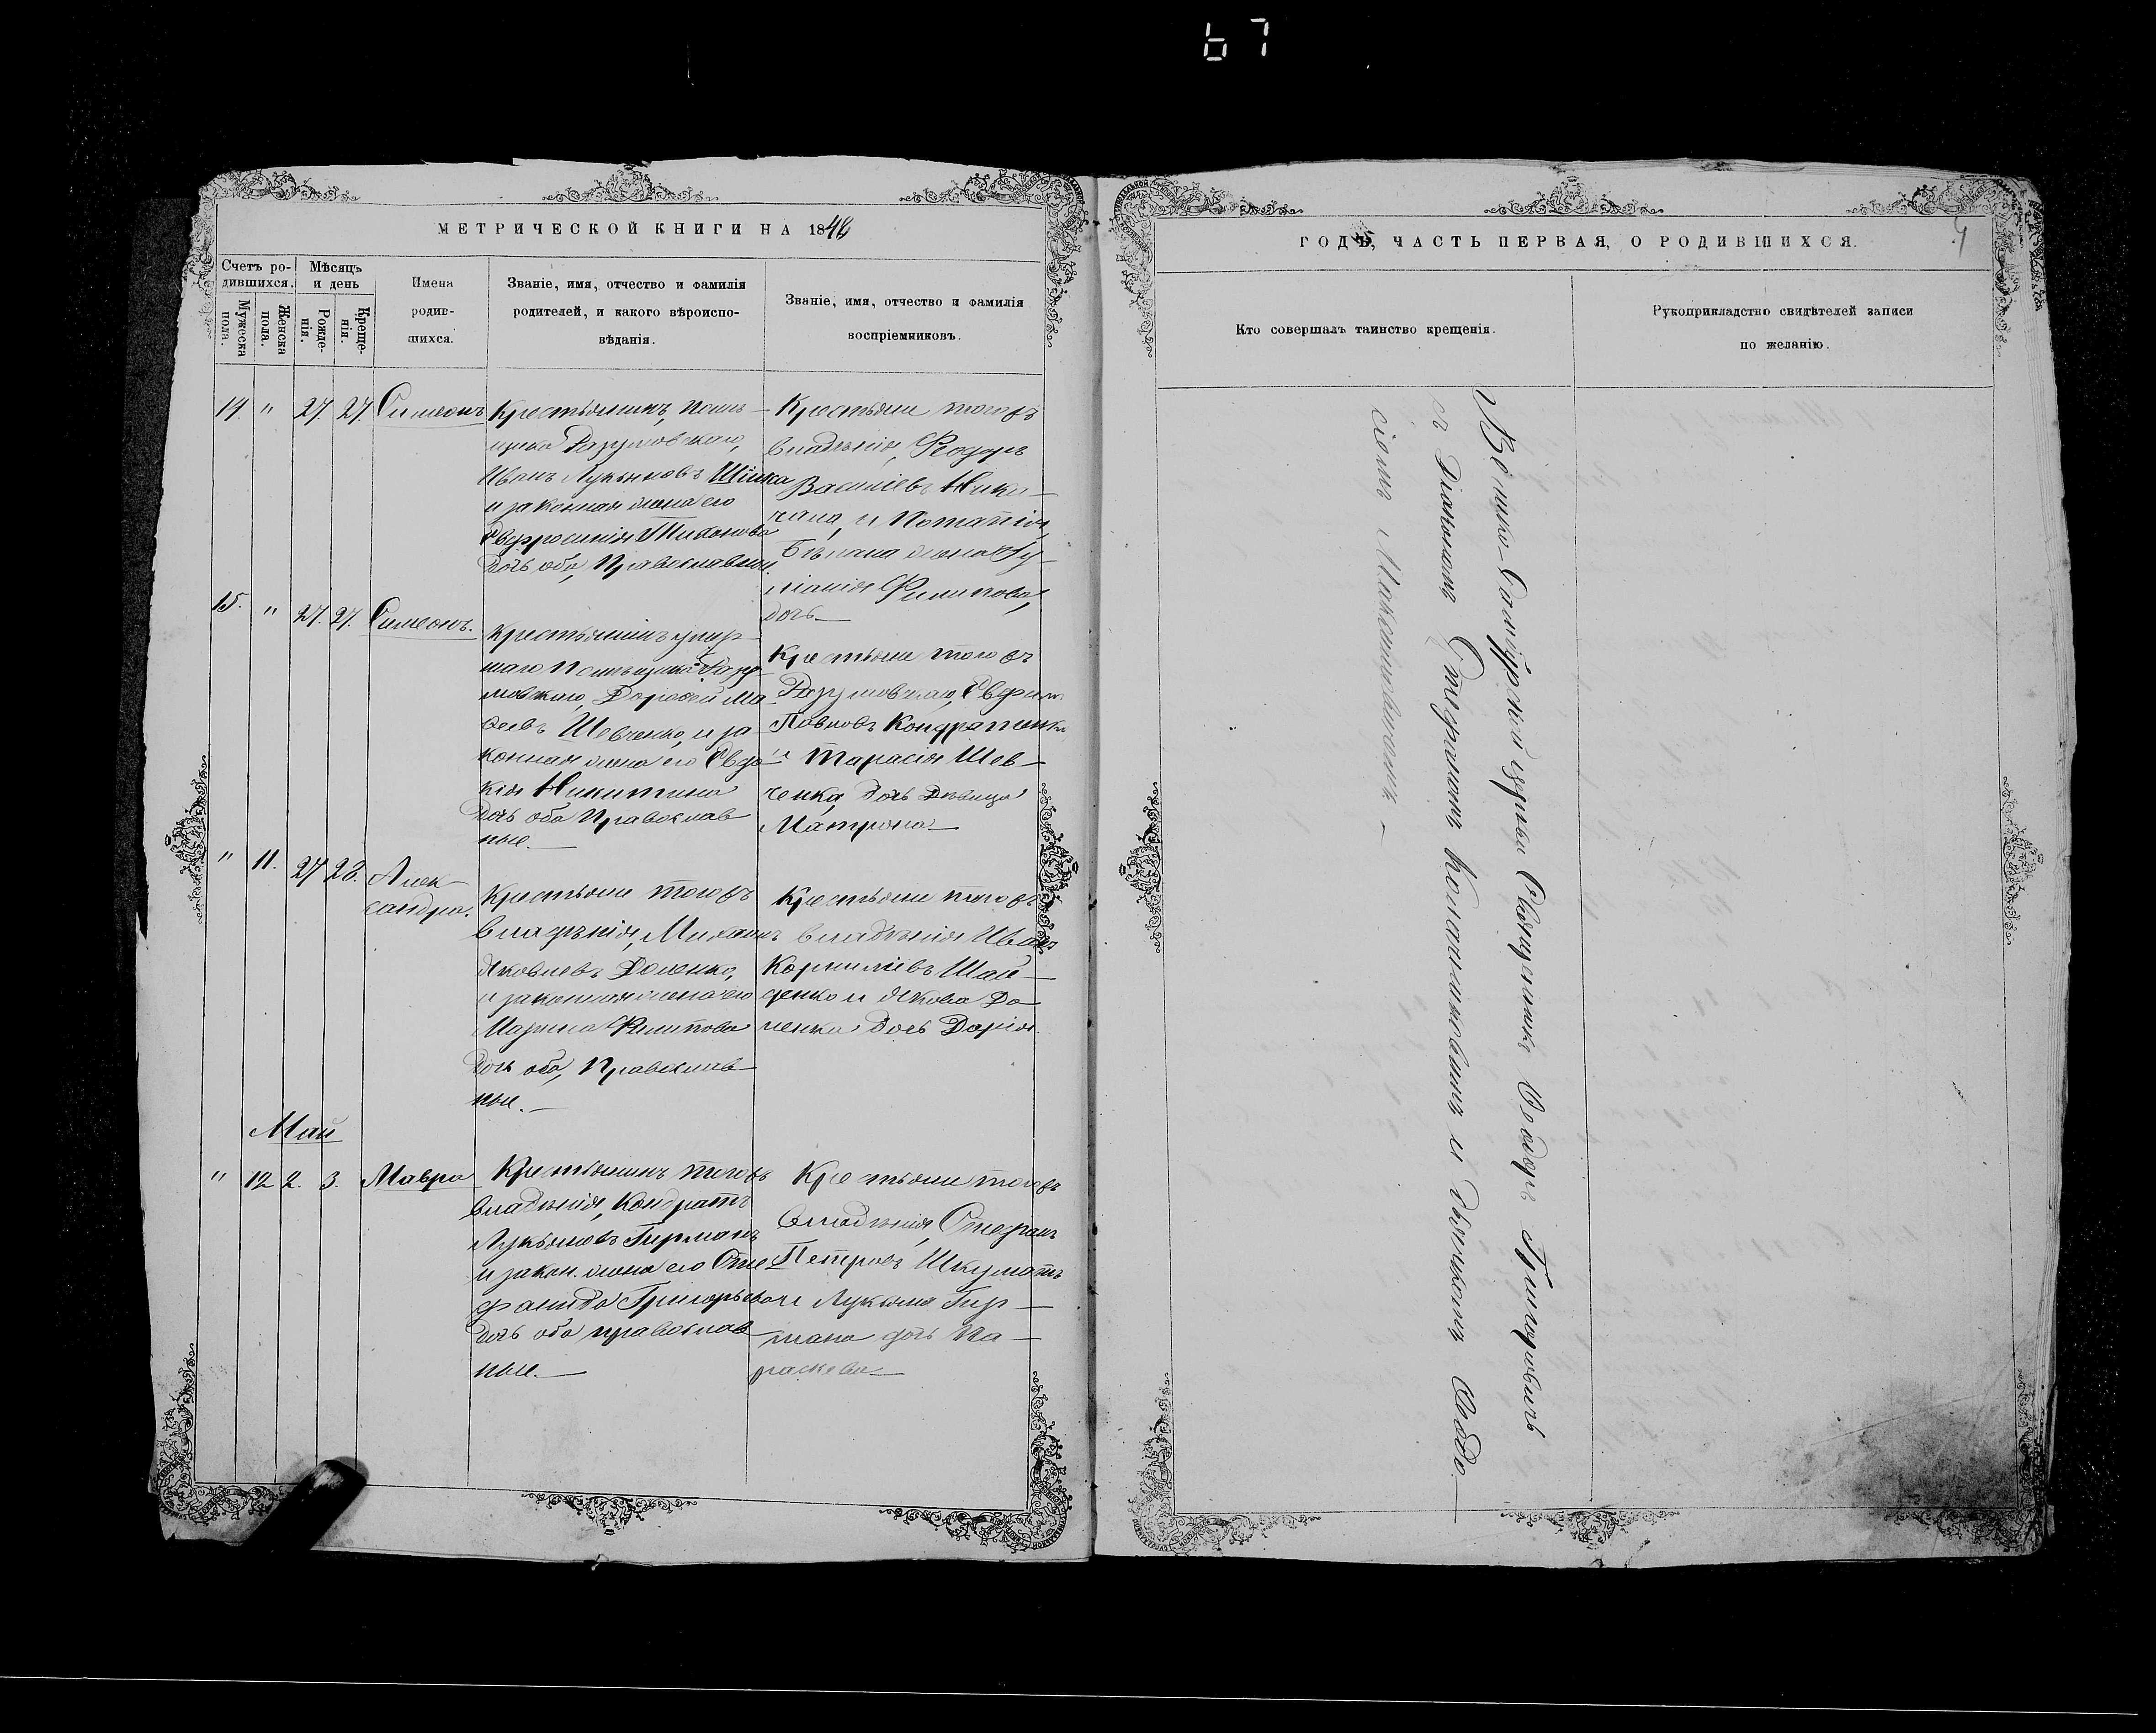 67
МЕТРИЧЕСКОЙ КНИГИ НА 1846
Счетъ ро-
дившихся.
Мѣсяцъ
и день
Мужеска
пола.
Женска
пола.
Рожде-
нія.
Креще-
нія.
Имена
родив-
шихся.
Званіе, имя, отчество и фамилія
родителей, и какого вѣроиспо-
вѣданія.
Званіе, имя, отчество и фамилія
воспріемниковъ.
14. " 27. 27. Симеонъ
Крестьянинъ, помѣ-
щика Разумовскаго,
Иванъ Лукьяновъ Шинка
и законная жена его
Евфросинія Тихонова
дочь оба, Православные.
Крестьяне тогожъ
владѣнія, Феодоръ
Василіевъ Ники-
и
жена Іу-
ліанія Филипова,
дочь
15. " 27. 27. Симеонъ.
Крестьянинъ умер-
шаго Помѣщика Разу-
мовскаго, Дорофей Ма-
Шевченко, и за-
конная жена его Евдо-
кія Никитина
дочь оба Православ
ные.
Крестьяне тогожъ
Разумовскаго, Евфим
Павловъ Кондратенко
и Тарасія Шев-
ченка, дочь Дѣвица
Матрона
" 11. 27 28. Алек
сандра.
Крестьяне тогожъ
владѣнія, Михаилъ
Яковлевъ Доленко,
и законная жена его
Марина Филипова
дочь оба, Православ-
ные.
Крестьяне тогожъ
владѣнія Иванъ
Корниліевъ Шай-
денко и Якова До
ленка дочь Дарія.
Май
" 12 2. 3. Мавра
Крестьянинъ тогожъ
владѣнія, Кондратъ
Лукьяновъ Гирманъ
и закон. жена его Сте
фанида Григорьева
дочь оба православ
ные.
Крестьяне тогожъ
владѣнія, Стефанъ
Петровъ Шкуматъ
и Лукьяна Гир-
мана дочь Па-
раскева
ГОДЪ, ЧАСТЬ ПЕРВАЯ, О РОДИВШИХСЯ.
9
Кто совершалъ таинство крещенія.
Рукоприкладство свидѣтелей записи
по желанію.
Священникъ Феодоръ Григоровичъ
съ Діакономъ Стефаномъ и Дьячкомъ